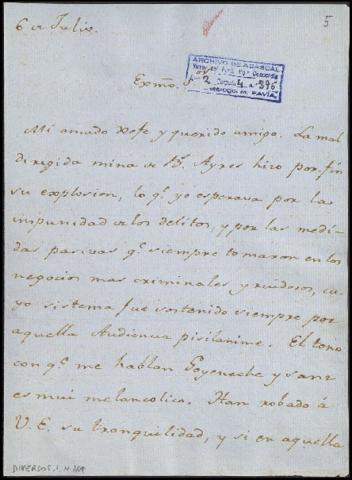 6 de Julio.
5
Exmo. Sor
ARCHIVO DE ABASCAL
2 4 396
PAVÍA
Mi amado Xefe y querido amigo. La mal
dirigida mina de Bs. Ayres hizo por fin
su explosion, lo qe. yo esperava por las
inpunidad de los delitos, y por las medi-
das pasivas qe. siempre tomaron en los
negocios mas criminales y ruidosos, cu-
yo sistema fue sostenido siempre por
aquella Audiencia pisilanime. El tono
con qe. me hablan Goyeneche y Sanz
es mui melancolico. Han robado á
V. E. su tranquilidad, y si en aquella
DIVERSOS, 1